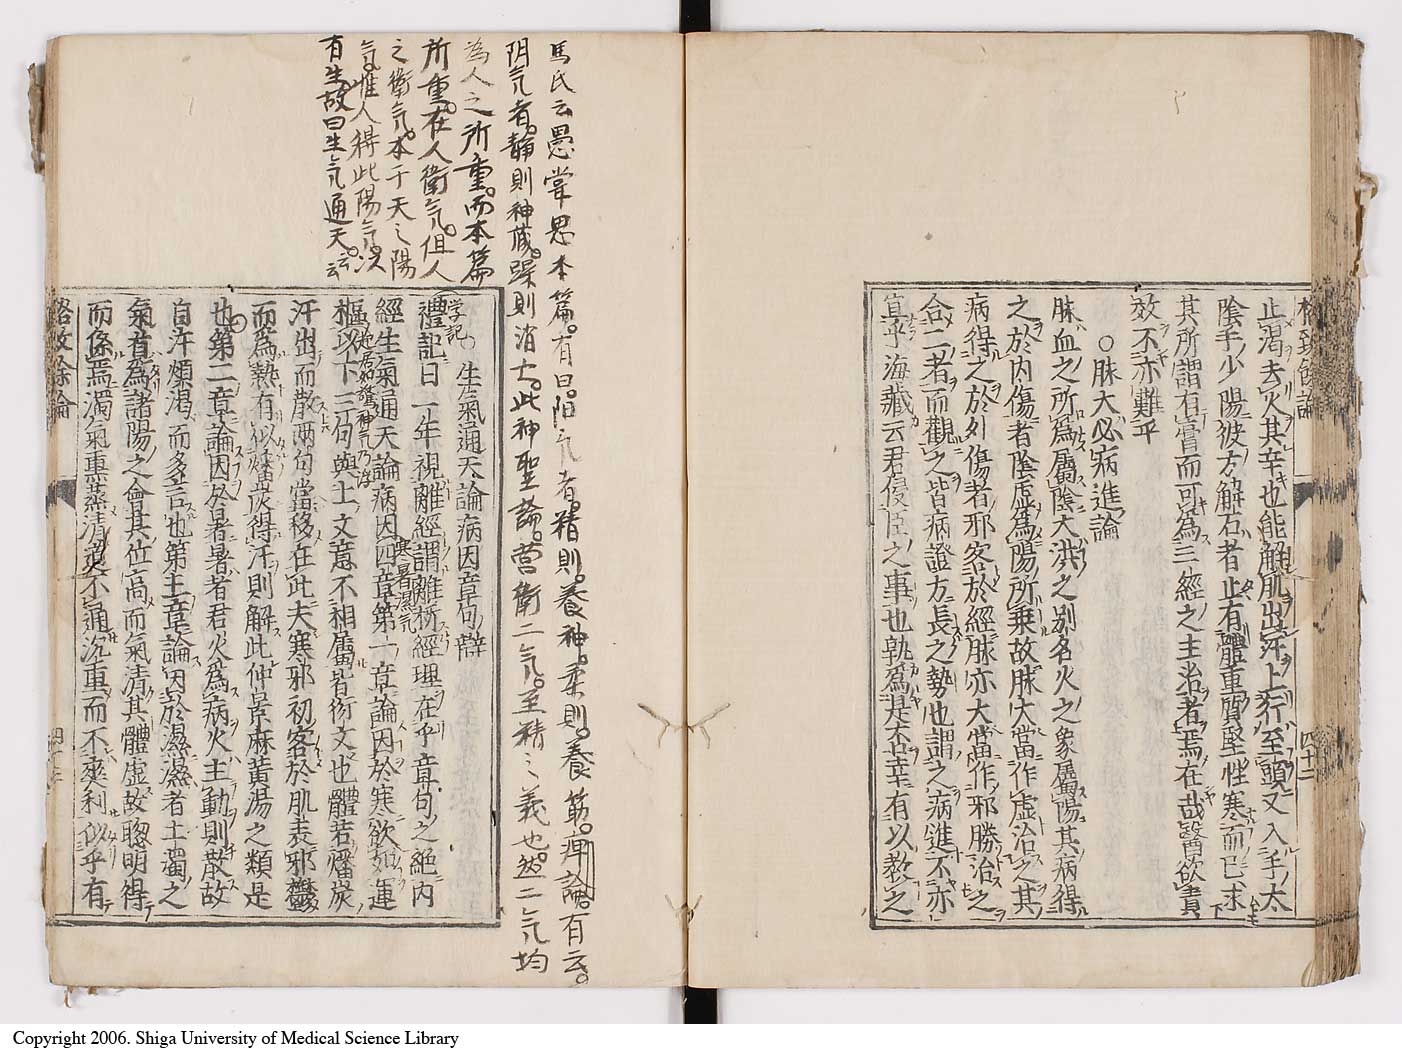 格致餘論
止渴去火其辛也能解肌出汗上行至頭又入手太
陰手少陽彼方解石者止有體重質堅性寒而已求
其所謂有膏而可為三經之主治者焉在哉醫欲責
效不亦難乎
○脉大必病進論
脉血之所為屬陰大洪之別名火之象屬陽其病得
之於内傷者陰虛為陽所乗故脉大當作虛治之其
病得之於外傷者邪客於經脉亦大當作邪勝治之
合二者而觀之皆病證方長之勢也謂之病進不亦
宜乎海藏云君侵臣之事也孰為是否幸有以教之
四十二
馬氏云愚嘗思本篇。有曰。阳気者。精則。養神。柔則。養筋。痺論有云。
阴気者。静則神蔵。躁則消亡。此神聖論。营衛二気。至精之義也。然二気均
為人之所重。而本篇
所重。在人衛気。但人
之衛気。本于天之陽
気。惟人得此陽気。以
有生。故曰生気通天。云云
生氣通天論病因章句辯
学記
禮記曰一年視離經謂離析經理在乎章句之絶内
經生氣通天論病因四章第一章論因於寒欲如運
寒暑濕気
起居如驚神気乃浮
樞以下三句與上文意不相屬皆衍文也體若燔炭
汗出而散兩句當移在此夫寒邪初客於肌表邪鬱
而爲熱有似燔炭得汗則解此仲景麻黄湯之類是
也○第二章論因於暑暑者君火爲病火主動則散故
自汗煩渴而多言也第三章論因於濕濕者土濁之
氣首爲諸陽之會其位高而氣清其體虛故聰明得
而係焉濁氣熏蒸清道不通沉重而不爽利似乎有
格致餘論
四十三
Copyright 2006. Shiga University of Medical Science Library